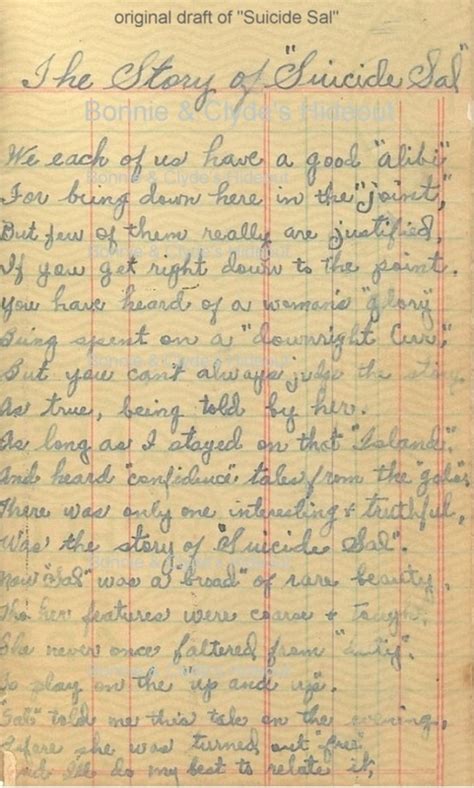 original draft of "Suicide Sal"
The Story of "Suicide Sal"
Bonnie & Clyde's Hideout
We each of us have a good "alibi"
Bonnie & Clyde's Hideout
For being down here in the "joint,"
But few of them really are justified,
Bonnie & Clyde's Hideout
If you get right down to the point.
You have heard of a woman's "glory"
Being spent on a "downright Cur,"
Bonnie & Clyde's Hideout
But you can't always judge the story
As true, being told by her.
As long as I stayed on that "Island"
And heard "confidence" tales from the "gals"
There was only one interesting & truthful,
Was the story of "Suicide Sal".
Bonnie & Clyde's Hideout
Now "Sal" was a "broad" of rare beauty,
Tho her features were coarse & tough
She never once faltered from "duty".
Bonnie & Clyde's Hideout
To play on the "up and up".
"Sal" told me this tale on the evening,
Before she was turned out "free"
And I'll do my best to relate it,